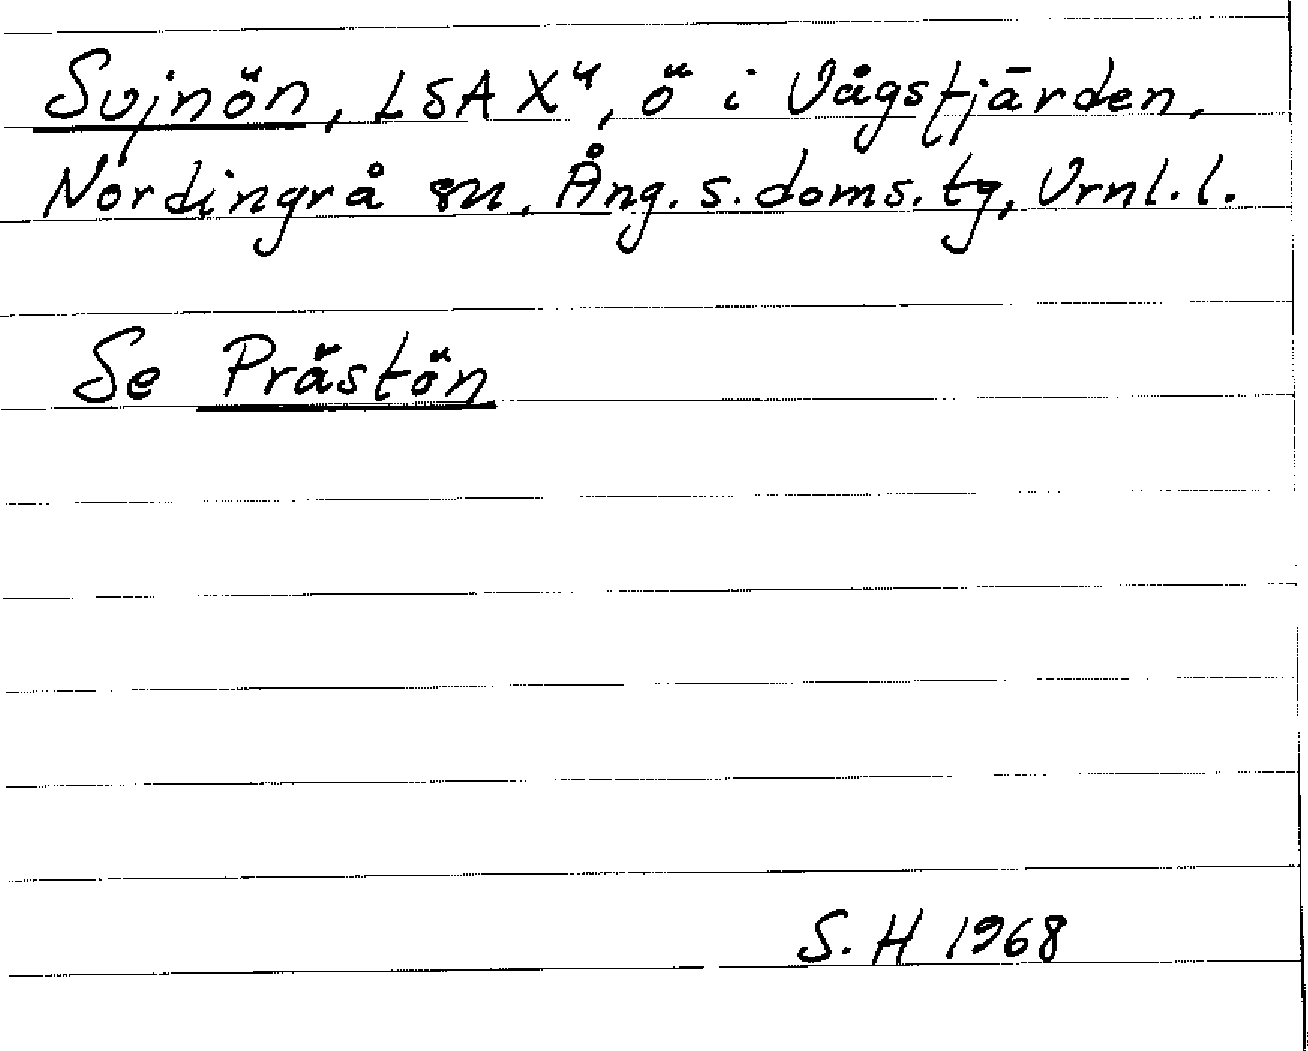 Svjnön, LSA X4, ö i Vågsfjärden,
Nordingrå sn, Ång. s. doms. tg, Vrnl. l.
Se Prästön
S. H 1968